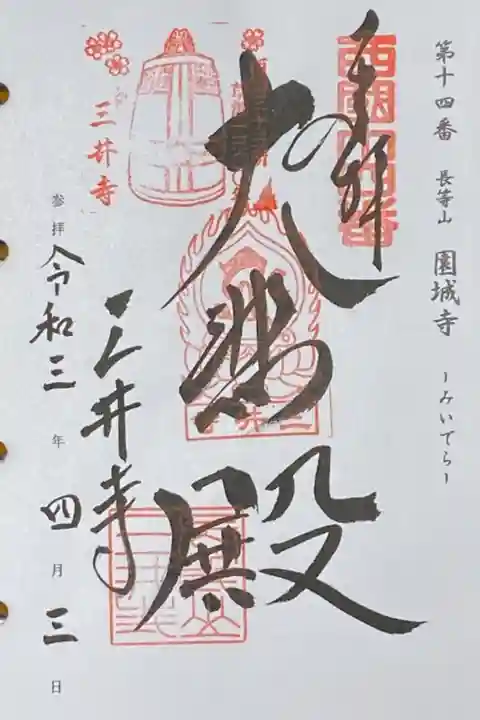 第十四番 長等山 園城寺 ーみいでらー
西国十四番
奉拝
大悲殿
三井寺
三井寺
三井寺
参拝 令和三年 四月三日